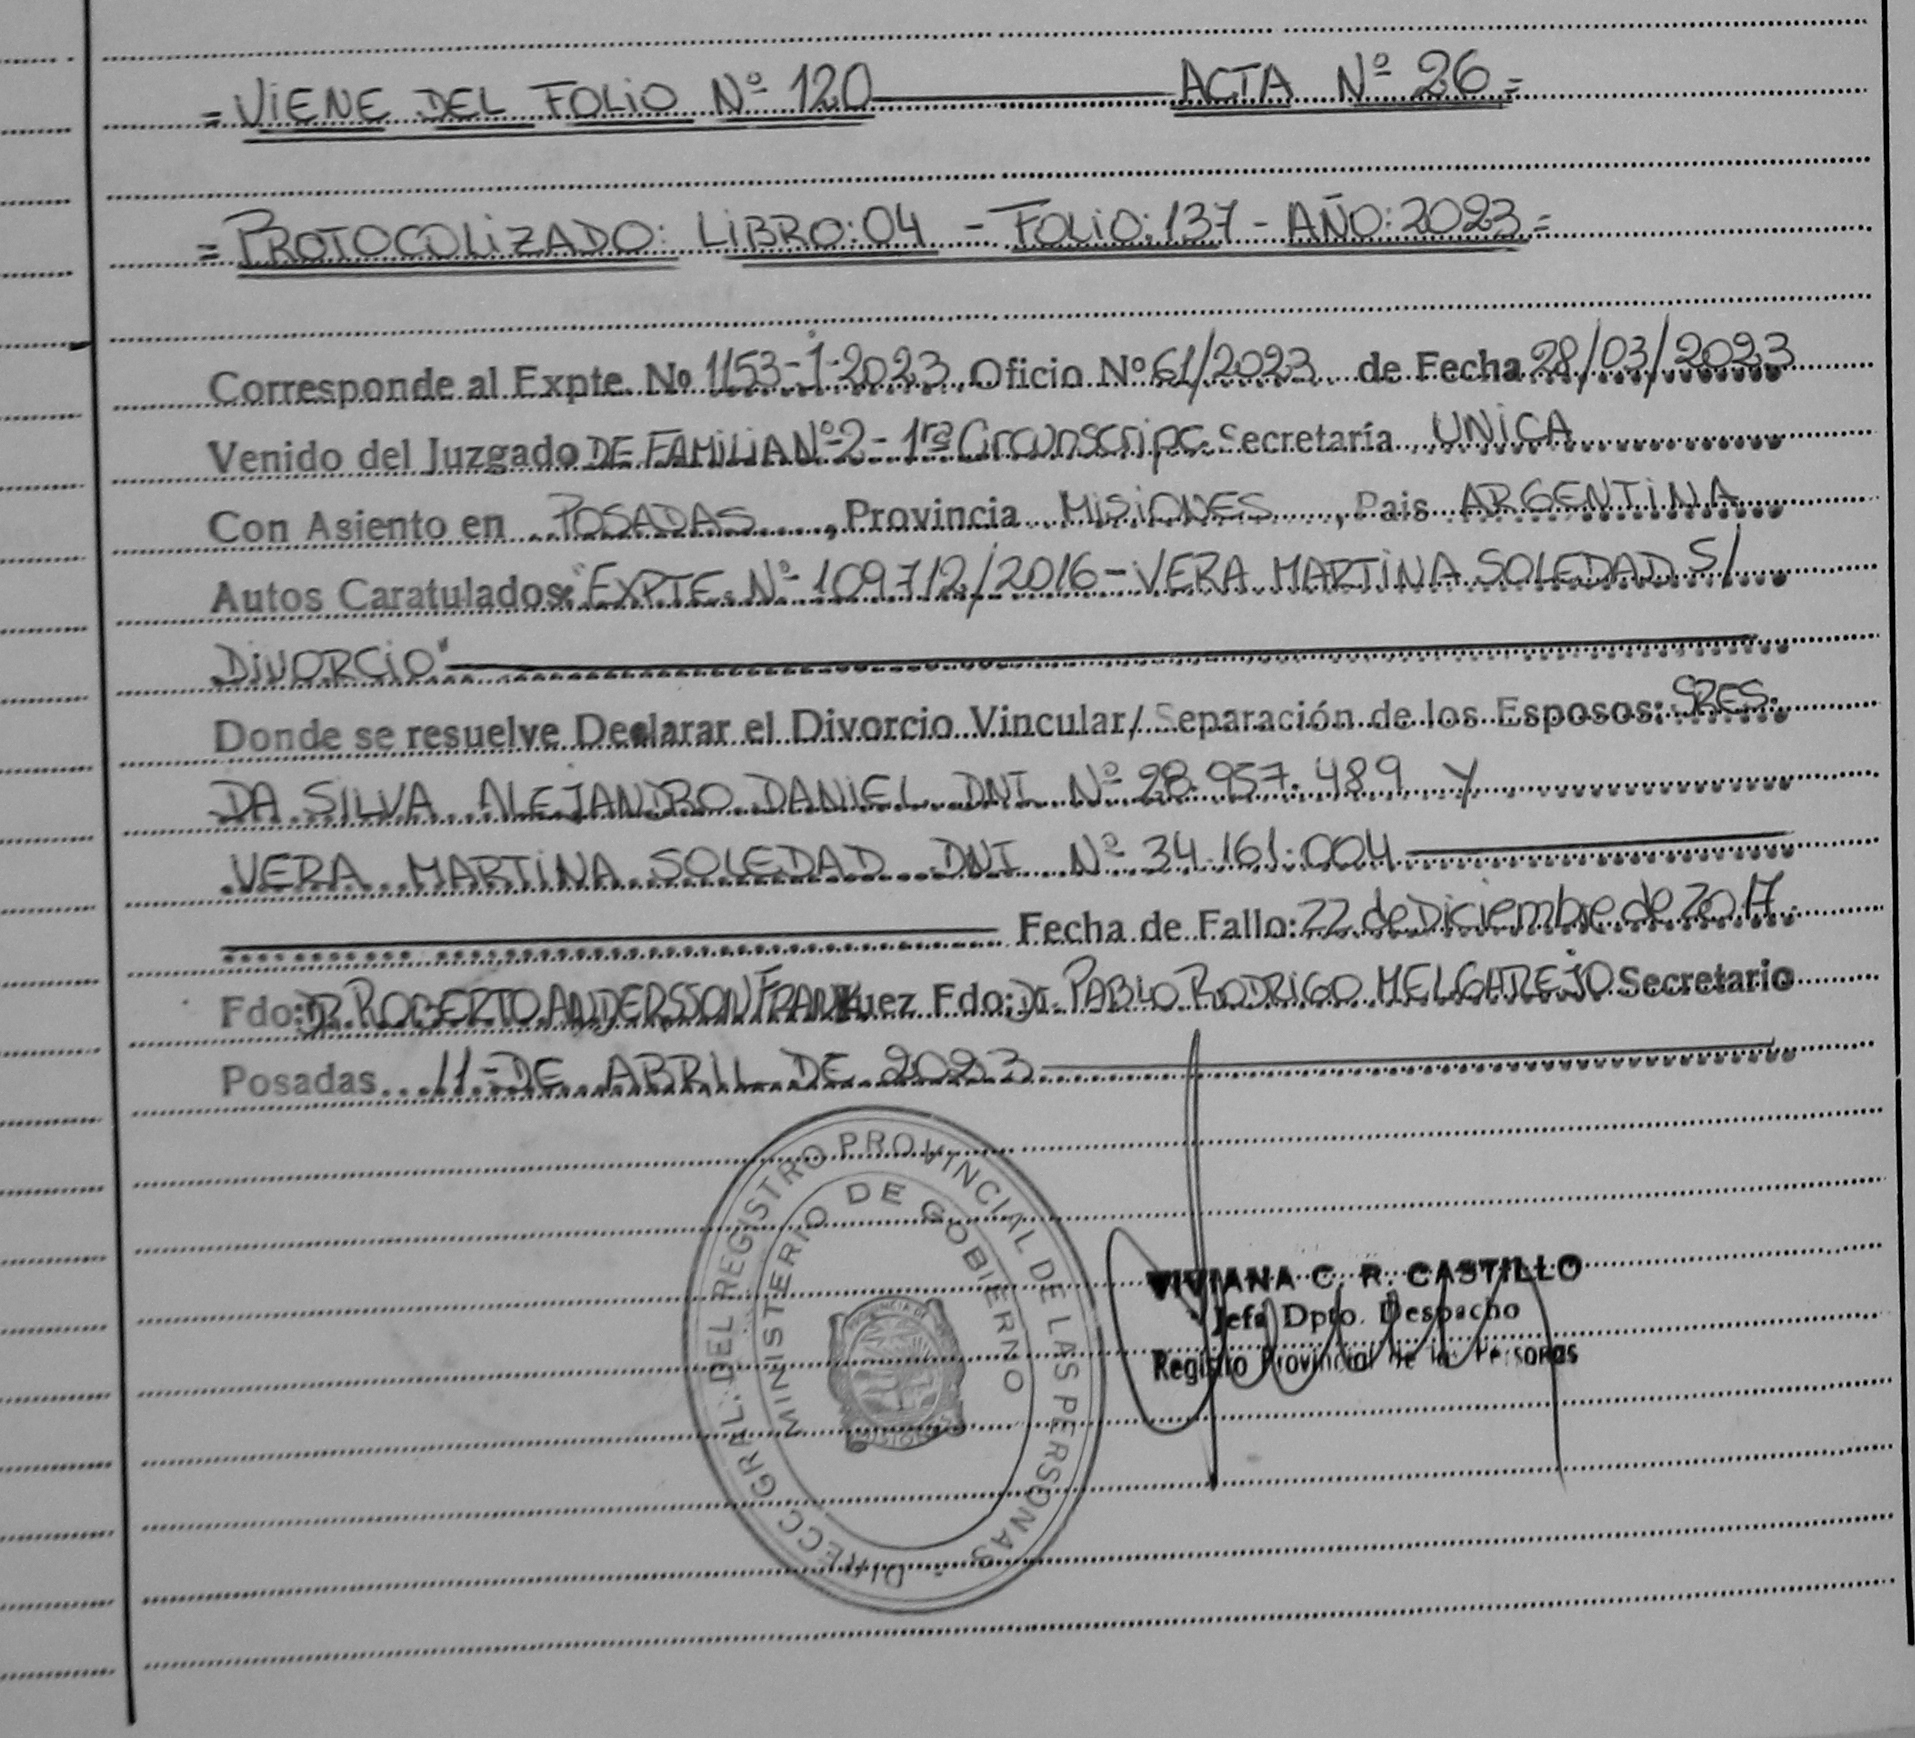 = VIENE DEL FOLIO Nº 120 ——— ACTA Nº 26 =
= PROTOCOLIZADO: LIBRO: 04 - FOLIO: 137 - AÑO: 2023 =
Corresponde al Expte. Nº 1153-I-2023 Oficio Nº 61/2023 de Fecha 28/03/2023
Venido del Juzgado DE FAMILIA Nº 2 - 1ra Circunscripc. Secretaría UNICA
Con Asiento en POSADAS, Provincia MISIONES, Pais ARGENTINA
Autos Caratulados: "EXPTE. Nº 109712/2016 - VERA MARTINA SOLEDAD S/
DIVORCIO"
Donde se resuelve Declarar el Divorcio Vincular/ Separación de los Esposos: SRES.
DA SILVA ALEJANDRO DANIEL DNI Nº 28.957.489 Y
VERA MARTINA SOLEDAD DNI Nº 34.161.004
Fecha de Fallo: 22 de Diciembre de 2017.
Fdo: DR. ROBERTO ANDERSSON FRANK Juez Fdo: Dr. PABLO RODRIGO MELGAREJO Secretario
Posadas 11 - DE ABRIL DE 2023
DIRECC GRAL. DEL REGISTRO PROVINCIAL DE LAS PERSONAS
MINISTERIO DE GOBIERNO
PROVINCIA DE
MISIONES
VIVIANA C. R. CASTILLO
Jefa Dpto. Despacho
Registro Provincial de las Personas